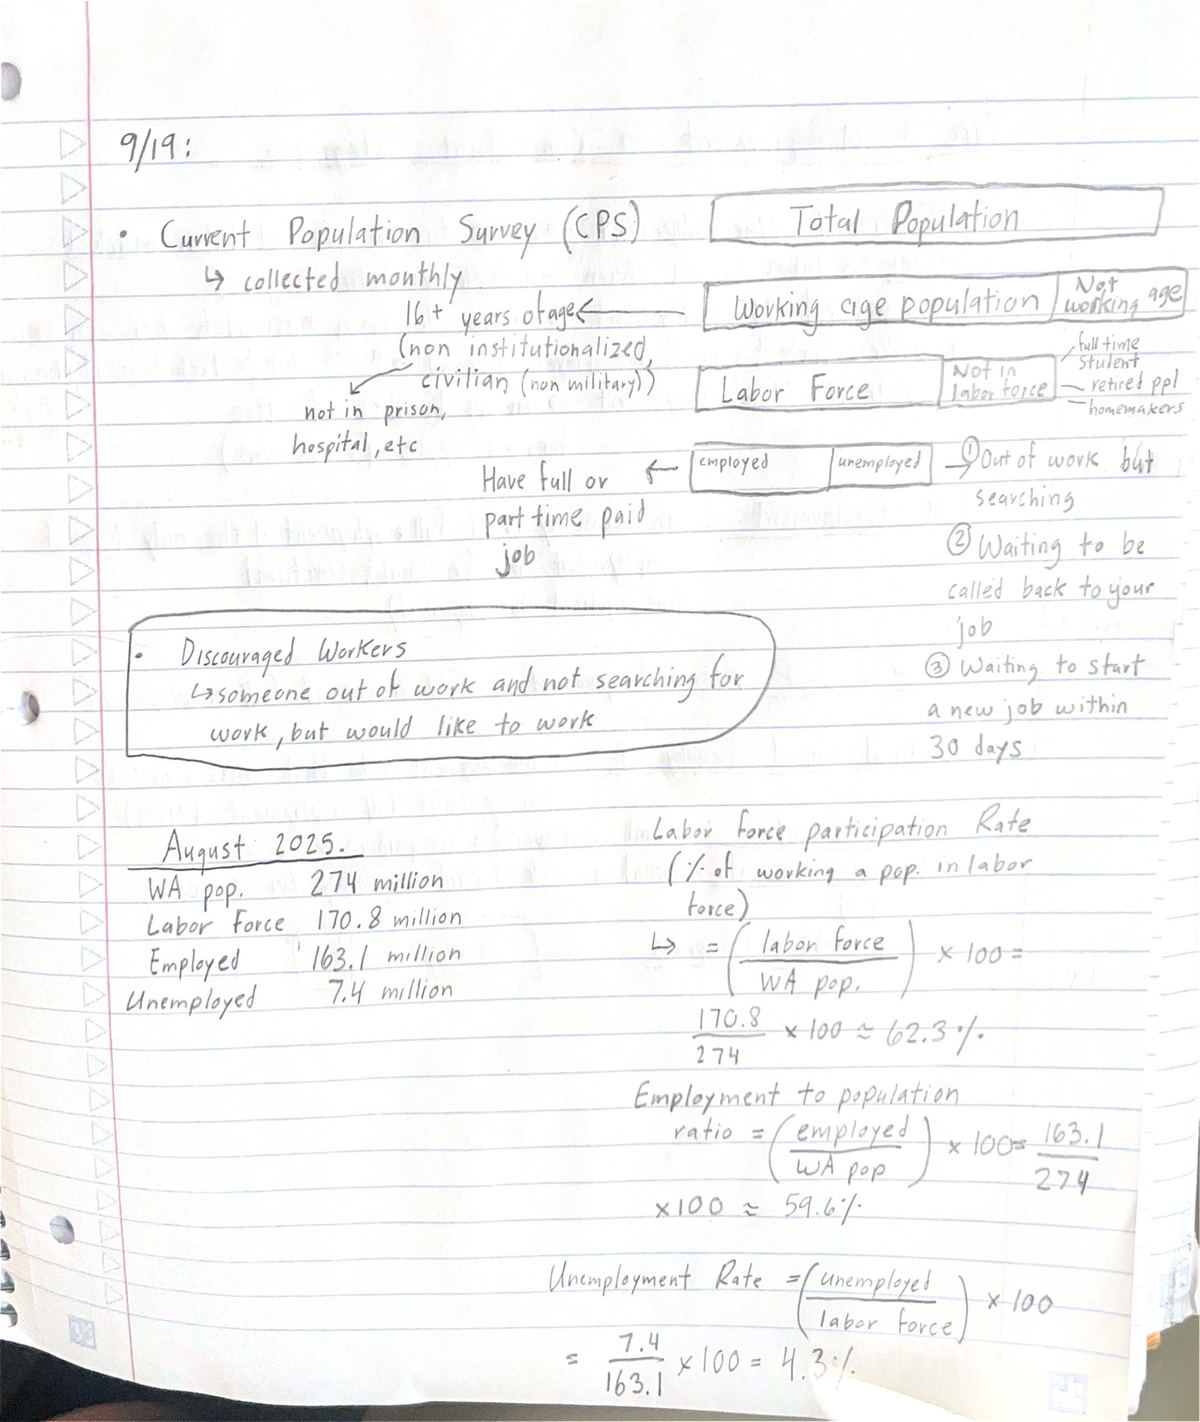 9/19:
• Current Population Survey (CPS)
↳ collected monthly
Total Population
Working age population
Not
working age
16+ years of age ←
(non institutionalized,
civilian (non military))
not in prison,
hospital, etc
Labor Force
Not in
labor force
full time
student
retired ppl
homemakers
employed
unemployed
Have full or
part time paid
job
① Out of work but
searching
② Waiting to be
called back to your
job
③ Waiting to start
a new job within
30 days
• Discouraged Workers
↳ someone out of work and not searching for
work, but would like to work
August 2025.
WA pop. 274 million
Labor Force 170.8 million
Employed 163.1 million
Unemployed 7.4 million
Labor force participation Rate
(% of working a pop. in labor
force)
↳ = (labor force / WA pop.) × 100 =
170.8 / 274 × 100 ≈ 62.3%
Employment to population
ratio = (employed / WA pop) × 100 = 163.1 / 274
×100 ≈ 59.6%
Unemployment Rate = (unemployed / labor force) × 100
= 7.4 / 163.1 × 100 = 4.3%